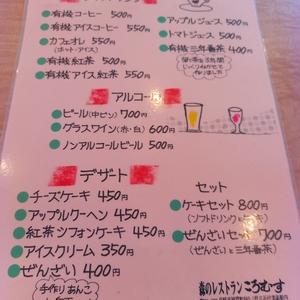 有機コーヒー 500円
有機アイスコーヒー 550円
カフェオレ 550円
(ホット・アイス)
有機紅茶 500円
有機アイス紅茶 550円
アップルジュース 500円
トマトジュース 500円
有機三年番茶 400円
じっくりねかせて
作りました
アルコール
ビール(中ビン) 700円
グラスワイン(赤・白) 600円
ノンアルコールビール 500円
デザート
チーズケーキ 450円
アップルクーヘン 450円
紅茶シフォンケーキ 450円
アイスクリーム 350円
ぜんざい 400円
手作りあんこ
セット
ケーキセット 800円
(ソフトドリンクと
ぜんざいセット 700円
(ぜんざいと三年番茶)
森のレストラン ころむす